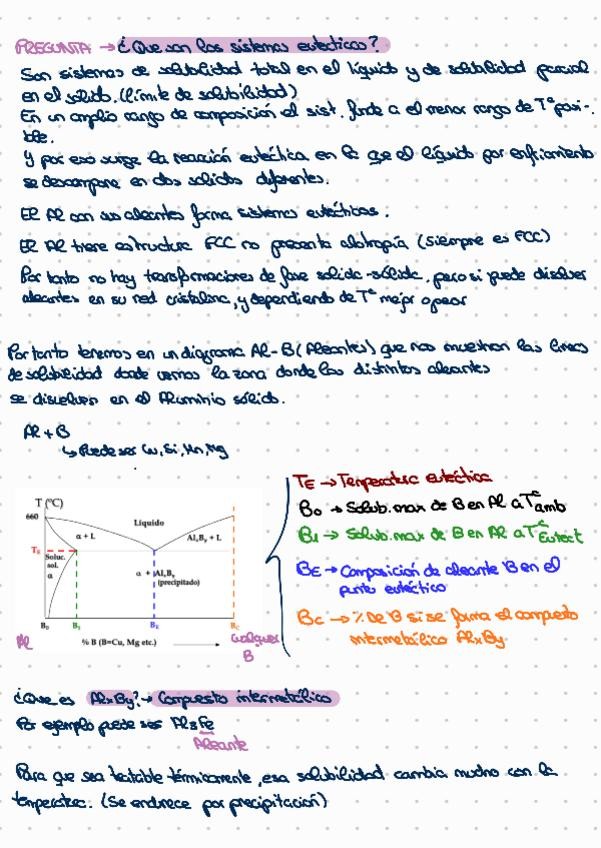 PREGUNTA → ¿Que son los sistemas eutecticos?
Son sistemas de solubilidad total en el líquido y de solubilidad parcial
en el solido. (límite de solubilidad)
En un amplio rango de composición el sist. funde a el menor rango de Tª posi-
ble.
Y por eso surge la reacción eutéctica en la que el líquido por enfriamiento
se descompone en dos solidos diferentes.
El Al con sus aleantes forma sistemas eutécticos.
El Al tiene estructura FCC no presenta alotropía (siempre es FCC)
Por tanto no hay transformaciones de fase solido-sólido, pero si puede disolver
aleantes en su red cristalina, y dependiendo de Tª mejor o peor
Por tanto tenemos en un diagrama Al-B (Aleantes) que nos muestran las lineas
de solubilidad donde vemos la zona donde los distintos aleantes
se disuelven en el Aluminio sólido.
Al + B
↳ Puede ser Cu, Si, Mn, Mg
T (ºC)
660
Líquido
α + L
AlxBy + L
TE
Soluc.
sol.
α
α + AlxBy
(precipitado)
B0 B1 BE BC
Al
% B (B=Cu, Mg etc.)
Cualquier
B
TE → Temperatura eutéctica
B0 → Solub. max de B en Al a Tª amb
B1 → Solub. max de B en Al a Tª Eutect
BE → Composición de aleante B en el
punto eutéctico
BC → % de B si se forma el compuesto
intermetálico AlxBy
¿Que es AlxBy? → Compuesto intermetálico
Por ejemplo puede ser Al3Fe
Aleante
Para que sea tratable térmicamente, esa solubilidad cambia mucho con la
temperatura. (Se endurece por precipitación)